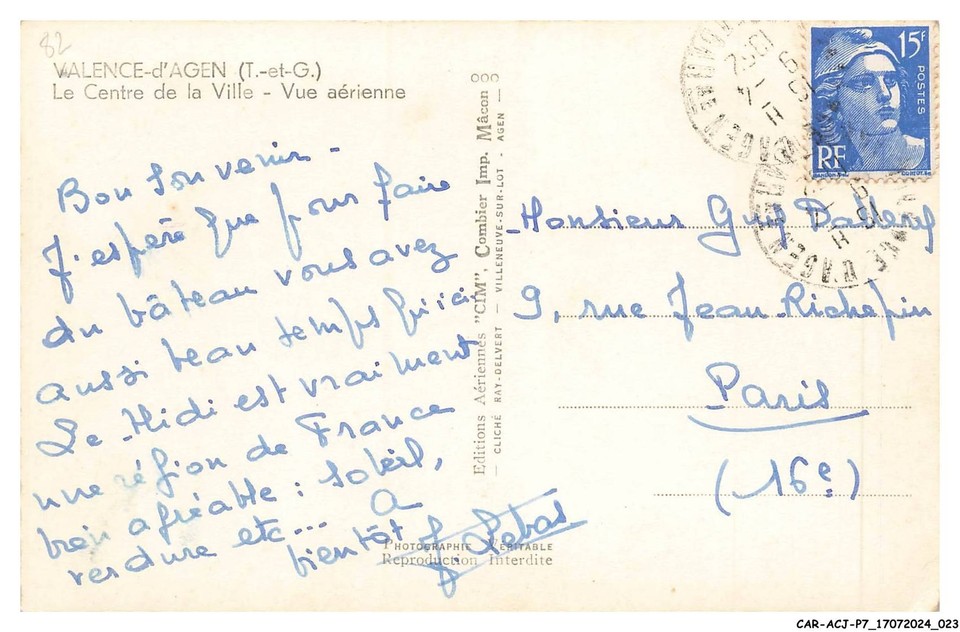 82
VALENCE-d'AGEN (T.-et-G.)
Le Centre de la Ville - Vue aérienne
Bon souvenir -
J'espère que pour faire
du bâteau vous avez
aussi beau temps qu'ici
Le Midi est vraiment
une région de France
bien agréable : soleil,
verdure etc... A
bientôt J. Lebas
PHOTOGRAPHIE VÉRITABLE
Reproduction Interdite
Editions Aériennes "CIM", Combier Imp. Mâcon
CLICHÉ RAY-DELVERT — VILLENEUVE-SUR-LOT - AGEN —
15F
POSTES
RF
Monsieur Guy
9, rue Jean Richepin
Paris
(16e)
CAR-ACJ-P7_17072024_023